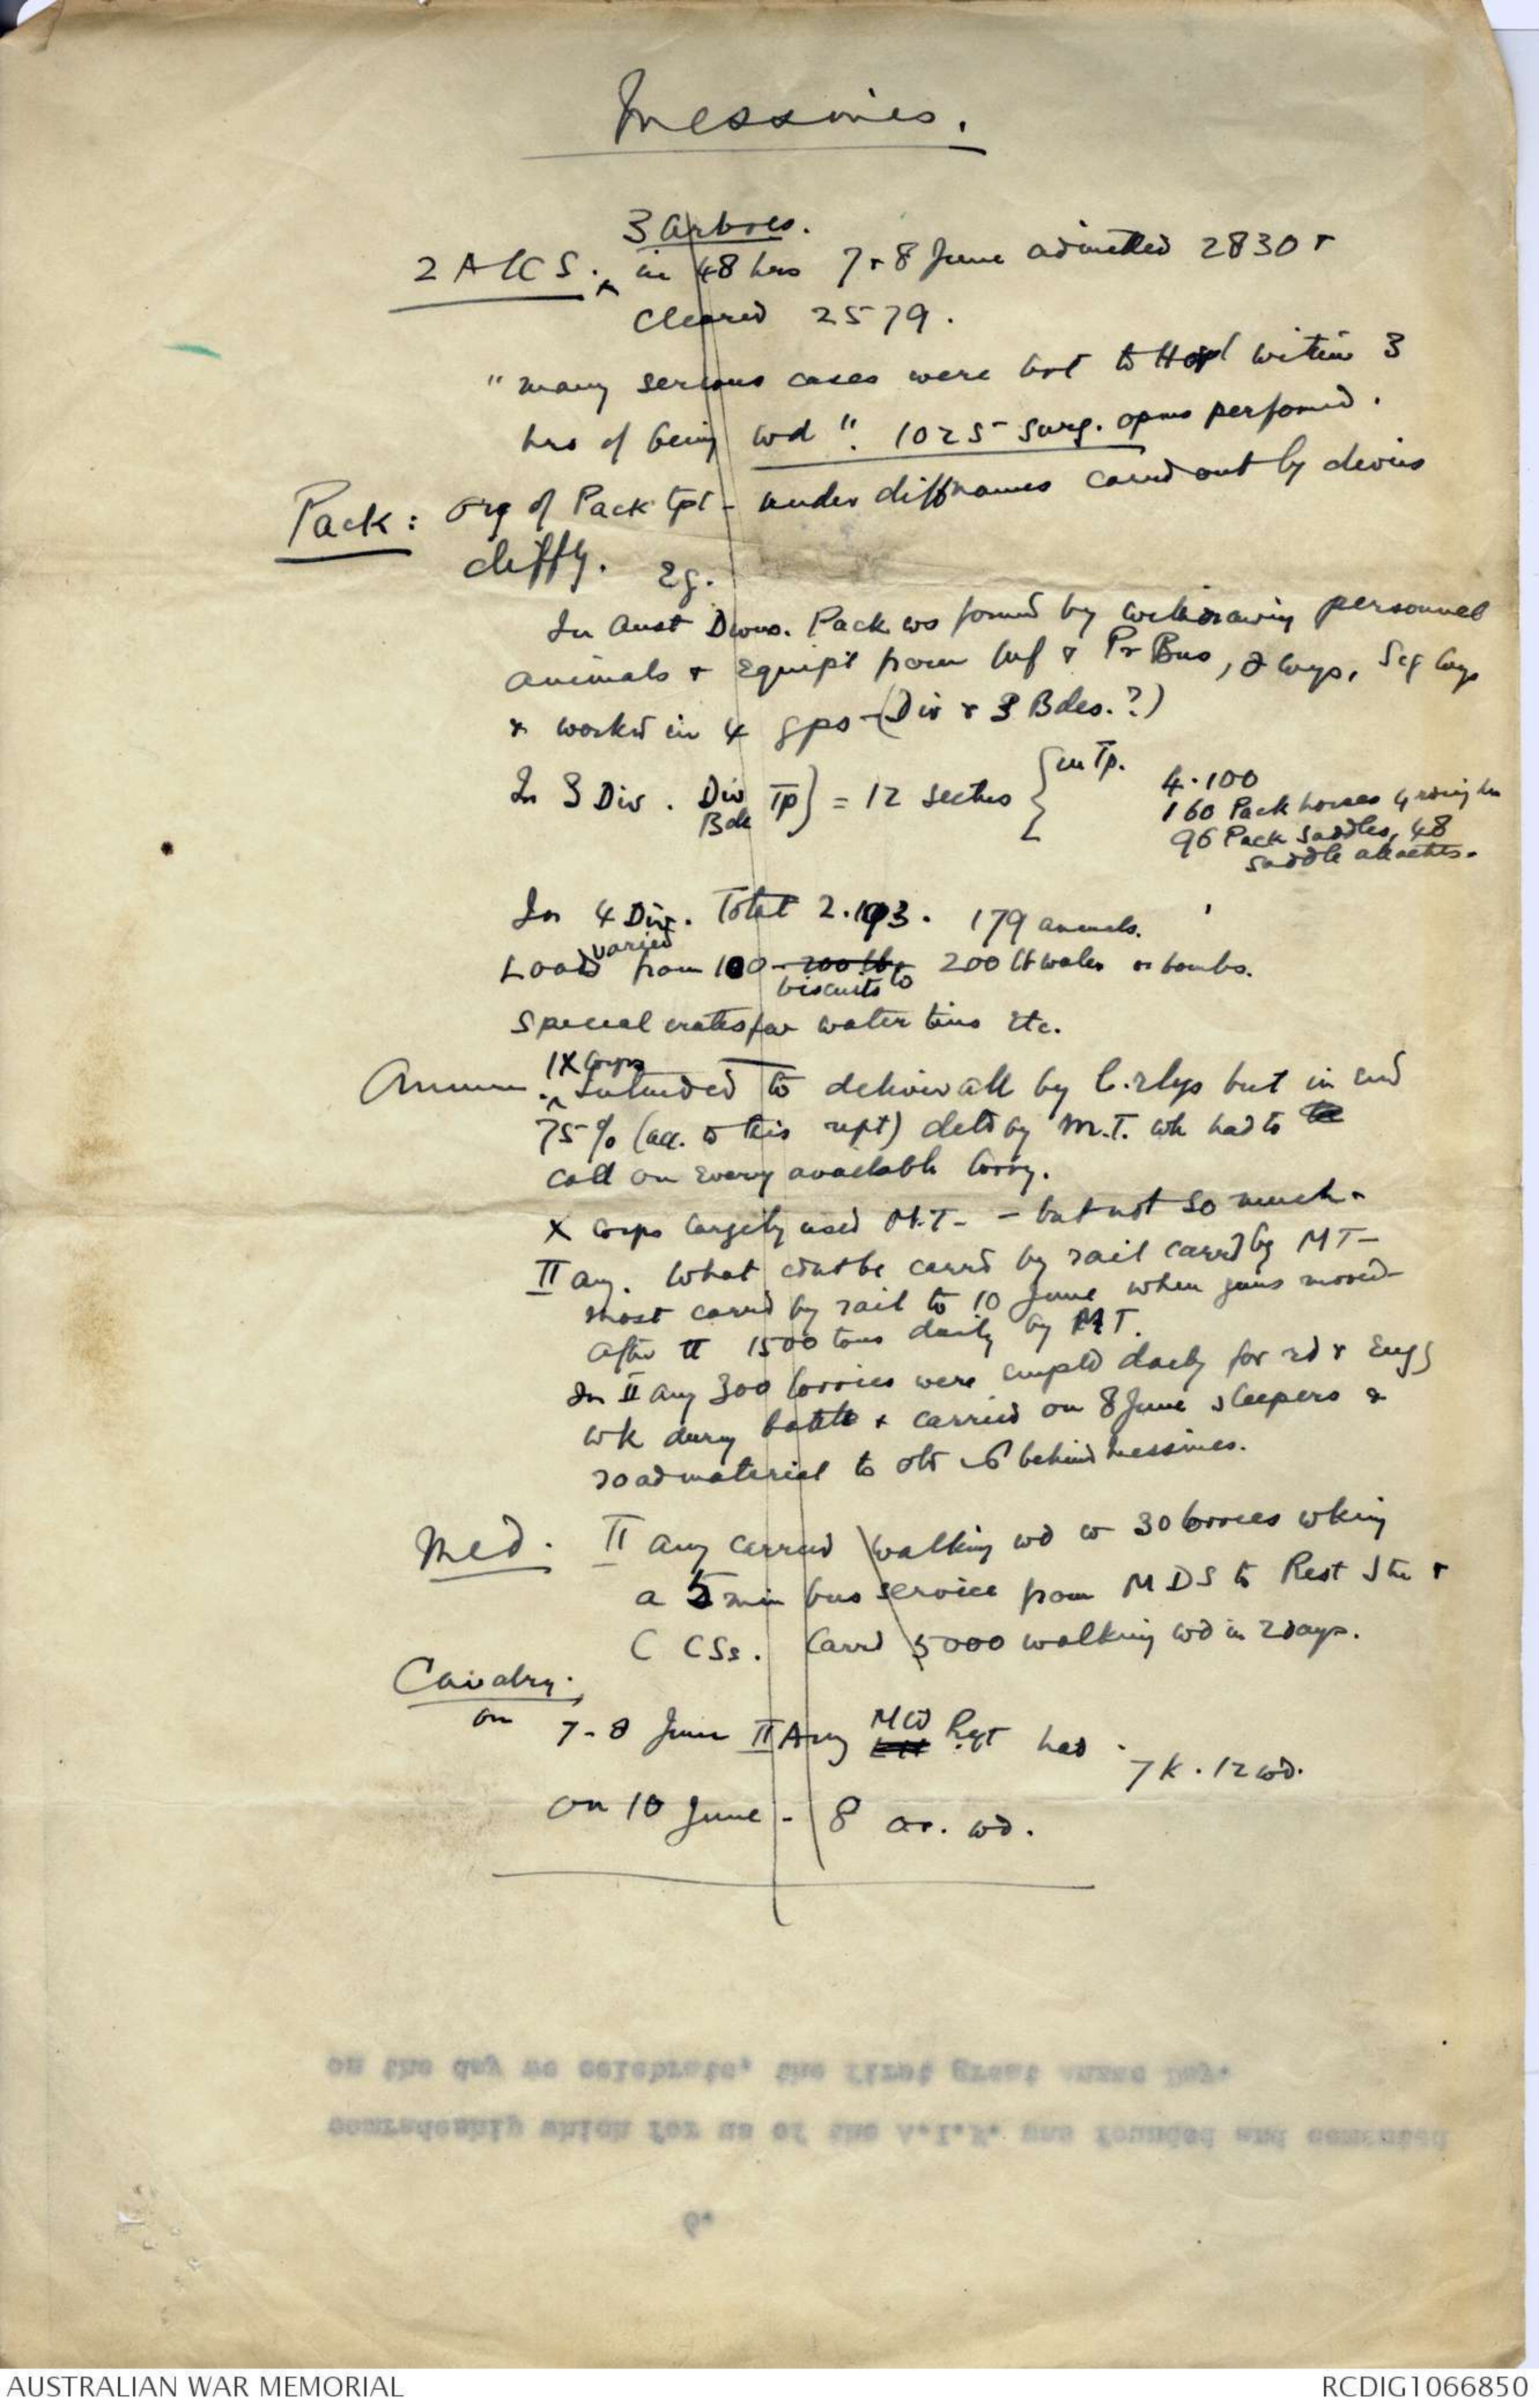 Messines.
3 Arbres.
2 ACCS. ^ in 48 hrs 7 & 8 June admitted 2830 &
cleared 2579.
"many serious cases were brt to Hospl within 3
hrs of being wd". 1025 surg. opns perfomed.
Pack: Org of Pack tpt - under diff names carrd out by divns
diffly. Eg.
In Aust Divns. Pack ws formd by withdrawing personnel
animals & equipt from Inf & Pr Bns, Coys, Sig Coys
& workd in 4 gps - (Div & 3 Bdes.?)
In 3 Div. Div Bde Tp } = 12 sectns { in Tp. 4.100
160 Pack horses 4 riding hrs
96 Pack saddles, 48
saddle attachts.
In 4 Div. Total 2.193. 179 animals.
Loads varied from 100 200 lbs biscuits to 200 lb water or bombs.
Special crates for water tins etc.
Ammn. ^ IX Corps Intended to deliver all by l. rlys but in end
75% (acc. to this rept) deld by M.T. wh had to be
call on every available lorry.
X Corps largely used M.T. - but not so much.
II Army. What cdnt be carrd by rail carrd by MT -
most carrd by rail to 10 June when guns moved
After tt 1500 tons daily by MT.
In II Army 300 lorries were empld daily for rd & Engs
wk durg battle & carried on 8 June sleepers &
road material to behind Messines.
Med. II Army carried walking wd w 30 lorries wking
a 5 min bus service from MDS to Rest Stn &
C CSs. Carrd 5000 walking wd in 2 days.
Cavalry.
on 7-8 June II Army MTD Rgt had 7 k. 12 wd.
on 10 June - 8 or. wd.
on the day we celebrate, the first great Anzac Day.
comradeship which for us of the A.I.F. was founded and cemented
6.
AUSTRALIAN WAR MEMORIAL
RCDIG1066850